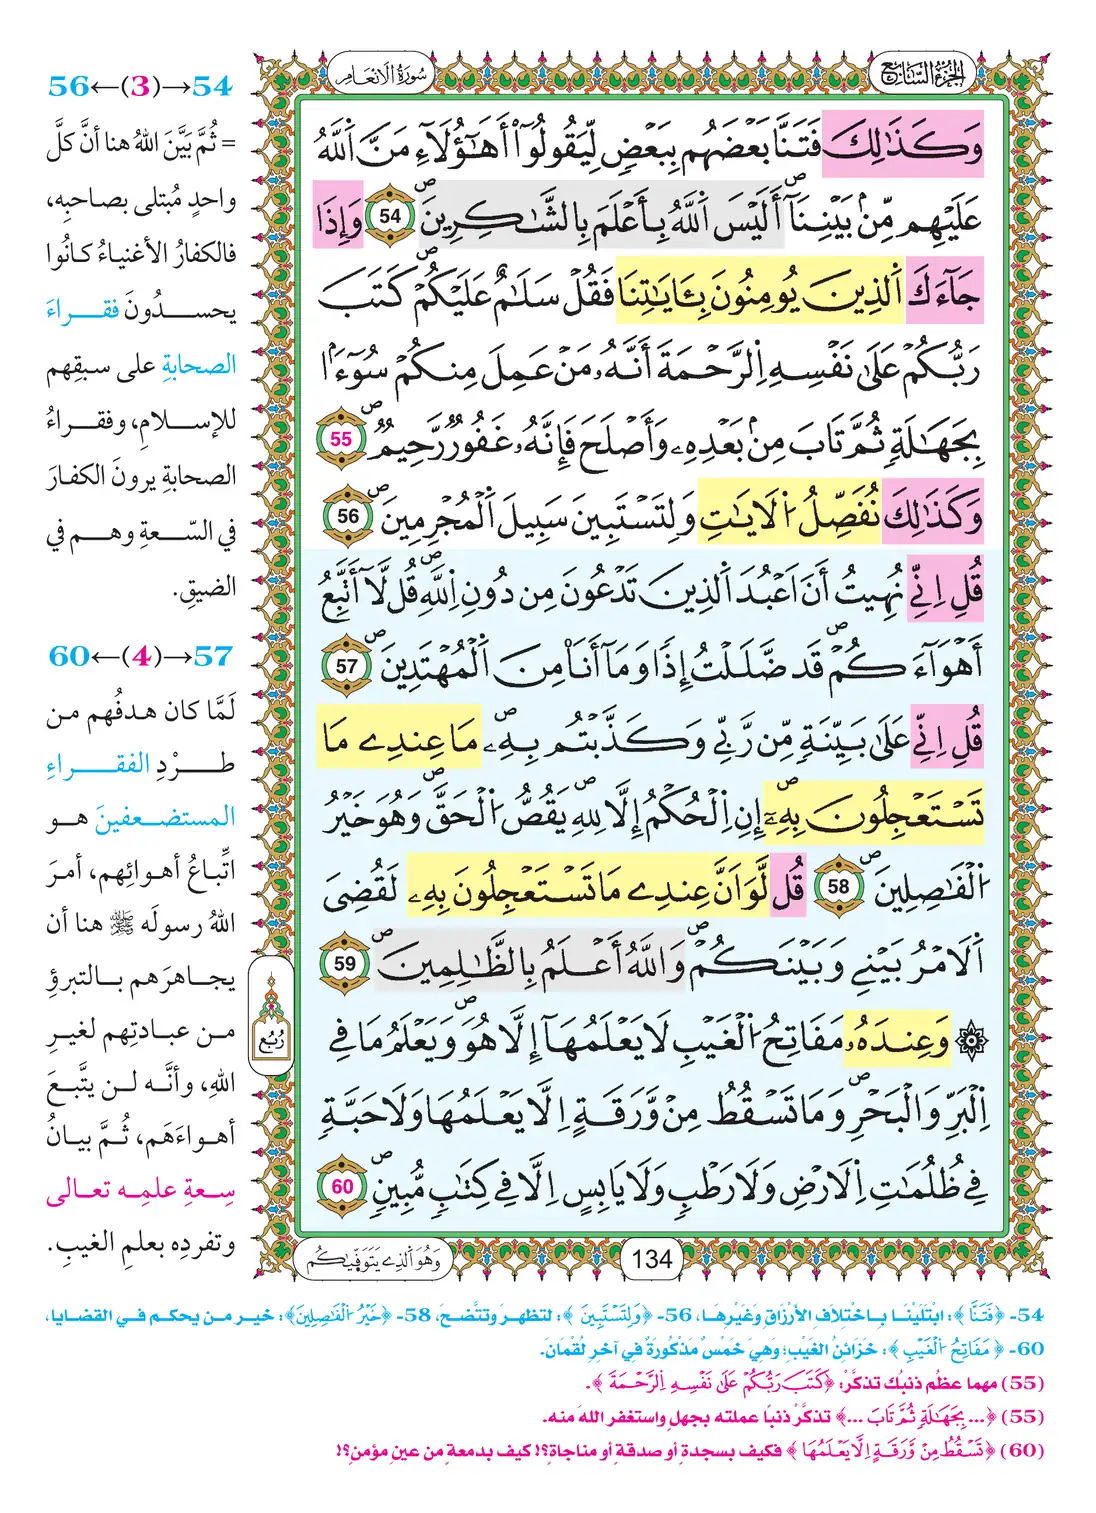 الجزء السابع
سورة الأنعام
وَكَذَٰلِكَ فَتَنَّا بَعْضَهُم بِبَعْضٖ لِّيَقُولُوٓاْ أَهَٰٓؤُلَآءِ مَنَّ اَ۬للَّهُ
عَلَيْهِم مِّنۢ بَيْنِنَآۖ أَلَيْسَ اَ۬للَّهُ بِأَعْلَمَ بِالشَّٰكِرِينَۖ 54 وَإِذَا
جَآءَكَ اَ۬لذِينَ يُومِنُونَ بِـَٔايَٰتِنَا فَقُلْ سَلَٰمٌ عَلَيْكُمْۖ كَتَبَ
رَبُّكُمْ عَلَىٰ نَفْسِهِ اِ۬لرَّحْمَةَ أَنَّهُۥ مَنْ عَمِلَ مِنكُمْ سُوٓءَۢا
بِجَهَٰلَةٖ ثُمَّ تَابَ مِنۢ بَعْدِهِۦ وَأَصْلَحَ فَإِنَّهُۥ غَفُورٞ رَّحِيمٞۖ 55
وَكَذَٰلِكَ نُفَصِّلُ اُ۬لَايَٰتِ وَلِتَسْتَبِينَ سَبِيلَ اَ۬لْمُجْرِمِينَۖ 56
قُلِ اِنِّے نُهِيتُ أَنَ اَعْبُدَ اَ۬لذِينَ تَدْعُونَ مِن دُونِ اِ۬للَّهِۖ قُل لَّآ أَتَّبِعُ
أَهْوَآءَكُمْۖ قَد ضَّلَلْتُ إِذاٗ وَمَآ أَنَا مِنَ اَ۬لْمُهْتَدِينَۖ 57
قُلِ اِنِّے عَلَىٰ بَيِّنَةٖ مِّن رَّبِّے وَكَذَّبْتُم بِهِۦۖ مَا عِندِے مَا
تَسْتَعْجِلُونَ بِهِۦٓۖ إِنِ اِ۬لْحُكْمُ إِلَّا لِلهِۖ يَقُصُّ اُ۬لْحَقَّۖ وَهُوَ خَيْرُ
اُ۬لْفَٰصِلِينَۖ 58 قُل لَّوَ اَنَّ عِندِے مَا تَسْتَعْجِلُونَ بِهِۦ لَقُضِيَ
اَ۬لَامْرُ بَيْنِے وَبَيْنَكُمْۖ وَاللَّهُ أَعْلَمُ بِالظَّٰلِمِينَۖ 59
وَعِندَهُۥ مَفَاتِحُ اُ۬لْغَيْبِ لَا يَعْلَمُهَآ إِلَّا هُوَۖ وَيَعْلَمُ مَا فِے
اِ۬لْبَرِّ وَالْبَحْرِۖ وَمَا تَسْقُطُ مِنْ وَّرَقَةٍ اِلَّا يَعْلَمُهَا وَلَا حَبَّةٖ
فِے ظُلُمَٰتِ اِ۬لَارْضِ وَلَا رَطْبٖ وَلَا يَابِسٍ اِلَّا فِے كِتَٰبٖ مُّبِينٖۖ 60
رُبُع
134
وَهُوَ اَ۬لذِے يَتَوَفَّيٰكُم
54→(3)←56
= ثُمَّ بَيَّنَ اللهُ هنا أنَّ كلَّ
واحدٍ مُبتلى بصاحبِه،
فالكفارُ الأغنياءُ كانُوا
يحسدُونَ فقراءَ
الصحابةِ على سبقِهم
للإسلامِ، وفقراءُ
الصحابةِ يرونَ الكفارَ
في السّعةِ وهم في
الضيقِ.
57→(4)←60
لَمَّا كان هدفُهم من
طرْدِ الفقراءِ
المستضعفينَ هو
اتِّباعُ أهوائِهم، أمرَ
اللهُ رسولَه ﷺ هنا أن
يجاهرَهم بالتبرؤِ
من عبادتِهم لغيرِ
اللهِ، وأنَّه لن يتَّبعَ
أهواءَهَم، ثُمَّ بيانُ
سِعةِ علمِه تعالى
وتفردِه بعلمِ الغيبِ.
54- ﴿فَتَنَّا﴾: ابْتَلَيْنَا بِاخْتِلَافِ الأرْزَاقِ وَغَيْرِهَا، 56- ﴿وَلِتَسْتَبِينَ﴾: لتظهرَ وتتَّضحَ، 58- ﴿خَيْرُ اُ۬لْفَٰصِلِينَ﴾: خير من يحكم في القضايا،
60- ﴿مَفَاتِحُ اُ۬لْغَيْبِ﴾: خَزَائِنُ الغَيْبِ؛ وَهِيَ خَمْسٌ مَذْكُورَةٌ فِي آخِرِ لُقْمَان.
(55) مهما عظُم ذنبُك تذكَّرْ: ﴿كَتَبَ رَبُّكُمْ عَلَىٰ نَفْسِهِ اِ۬لرَّحْمَةَ﴾.
(55) ﴿... بِجَهَٰلَةٖ ثُمَّ تَابَ ...﴾ تذكَّرْ ذنبًا عملته بجهلٍ واستغفر الله منه.
(60) ﴿تَسْقُطُ مِنْ وَّرَقَةٍ اِلَّا يَعْلَمُهَا﴾ فكيف بسجدةٍ أو صدقةٍ أو مناجاةٍ؟! كيف بدمعةٍ من عينِ مؤمنٍ؟!